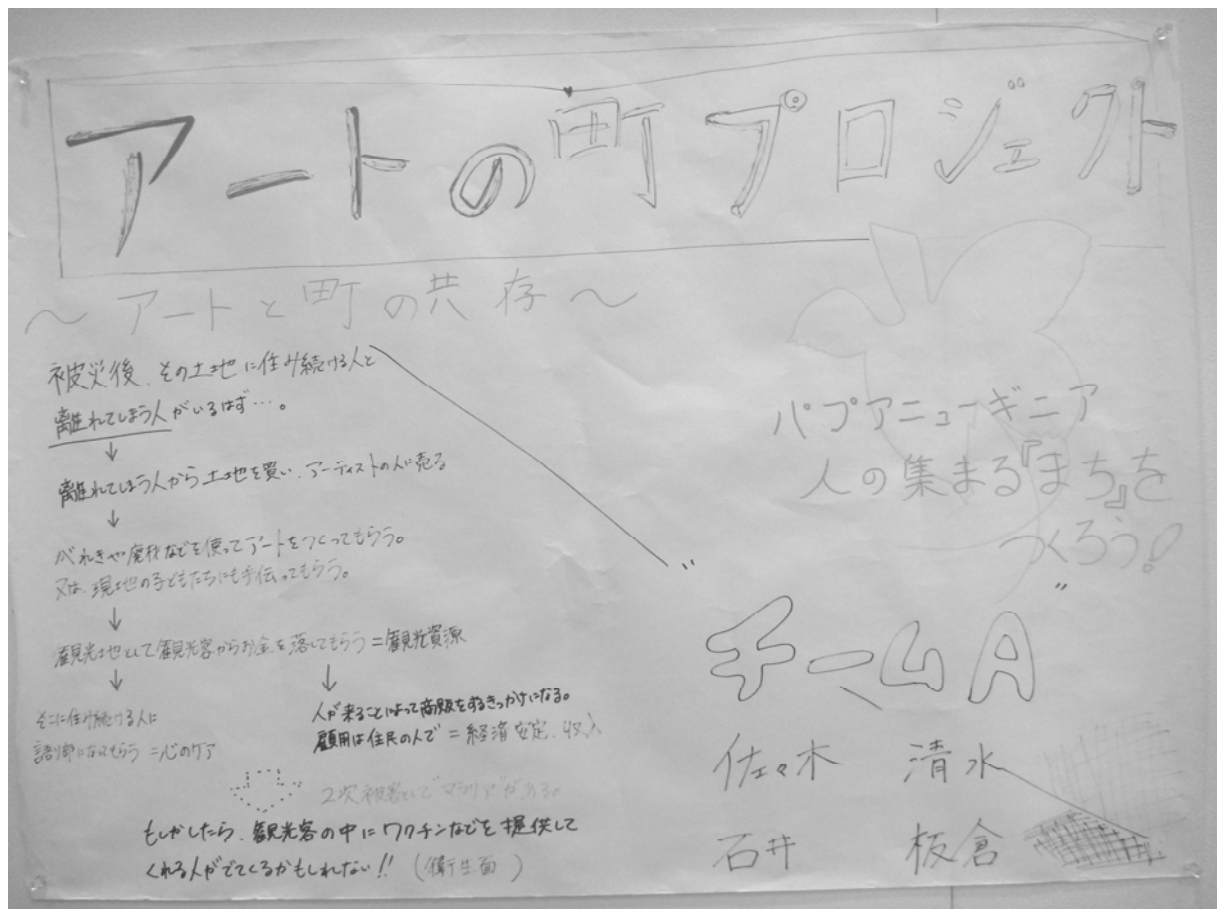 アートの町プロジェクト
～アートと町の共存～
被災後、その土地に住み続ける人と
離れてしまう人がいるはず…。
↓
離れてしまう人から土地を買い、アーティストの人に売る
↓
がれきや廃材などを使ってアートをつくってもらう。
又は、現地の子どもたちにも手伝ってもらう。
↓
観光地として観光客からお金を落してもらう＝観光資源
↓
そこに住み続ける人に
語り部になってもらう＝心のケア
↓
人が来ることによって商販をするきっかけになる。
雇用は住民の人で＝経済安定、収入
2次被害として"マラリア"がある。
もしかしたら、観光客の中にワクチンなどを提供して
くれる人がでてくるかもしれない!!（衛生面）
パプアニューギニア
人の集まる『まち』を
つくろう!
チームA
佐々木 清水
石井 板倉